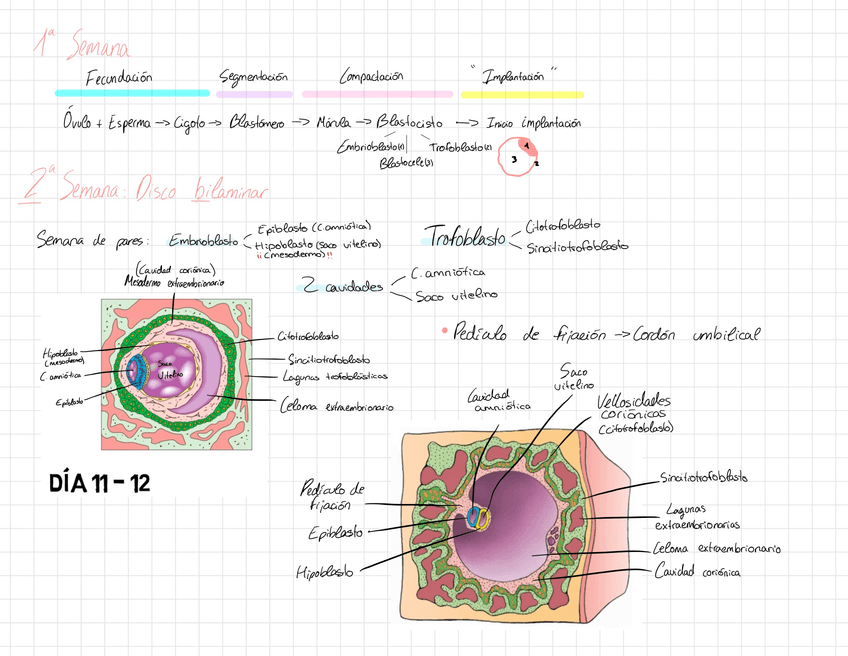 1ª Semana
Fecundación Segmentación Compactación "Implantación"
Óvulo + Esperma → Cigoto → Blastómero → Mórula → Blastocisto → Inicio implantación
Embrioblasto(1) Trofoblasto(2)
Blastocele(3)
1
3 2
2ª Semana: Disco bilaminar
Semana de pares: Embrioblasto
Epiblasto (C.amniótica)
Hipoblasto (Saco vitelino)
¡¡(mesodermo)!!
Trofoblasto
Citotrofoblasto
Sincitiotrofoblasto
2 cavidades
C. amniótica
Saco vitelino
(Cavidad coriónica)
Mesodermo extraembrionario
Hipoblasto
(mesodermo)
C. amniótica
Epiblasto
Saco
Vitelino
Citotrofoblasto
Sincitiotrofoblasto
Lagunas trofoblásticas
Celoma extraembrionario
• Pedículo de fijación → Cordón umbilical
DÍA 11 - 12
Cavidad
amniótica
Saco
vitelino
Vellosidades
coriónicas
(citotrofoblasto)
Pedículo de
fijación
Epiblasto
Hipoblasto
Sincitiotrofoblasto
Lagunas
extraembrionarias
Celoma extraembrionario
Cavidad coriónica